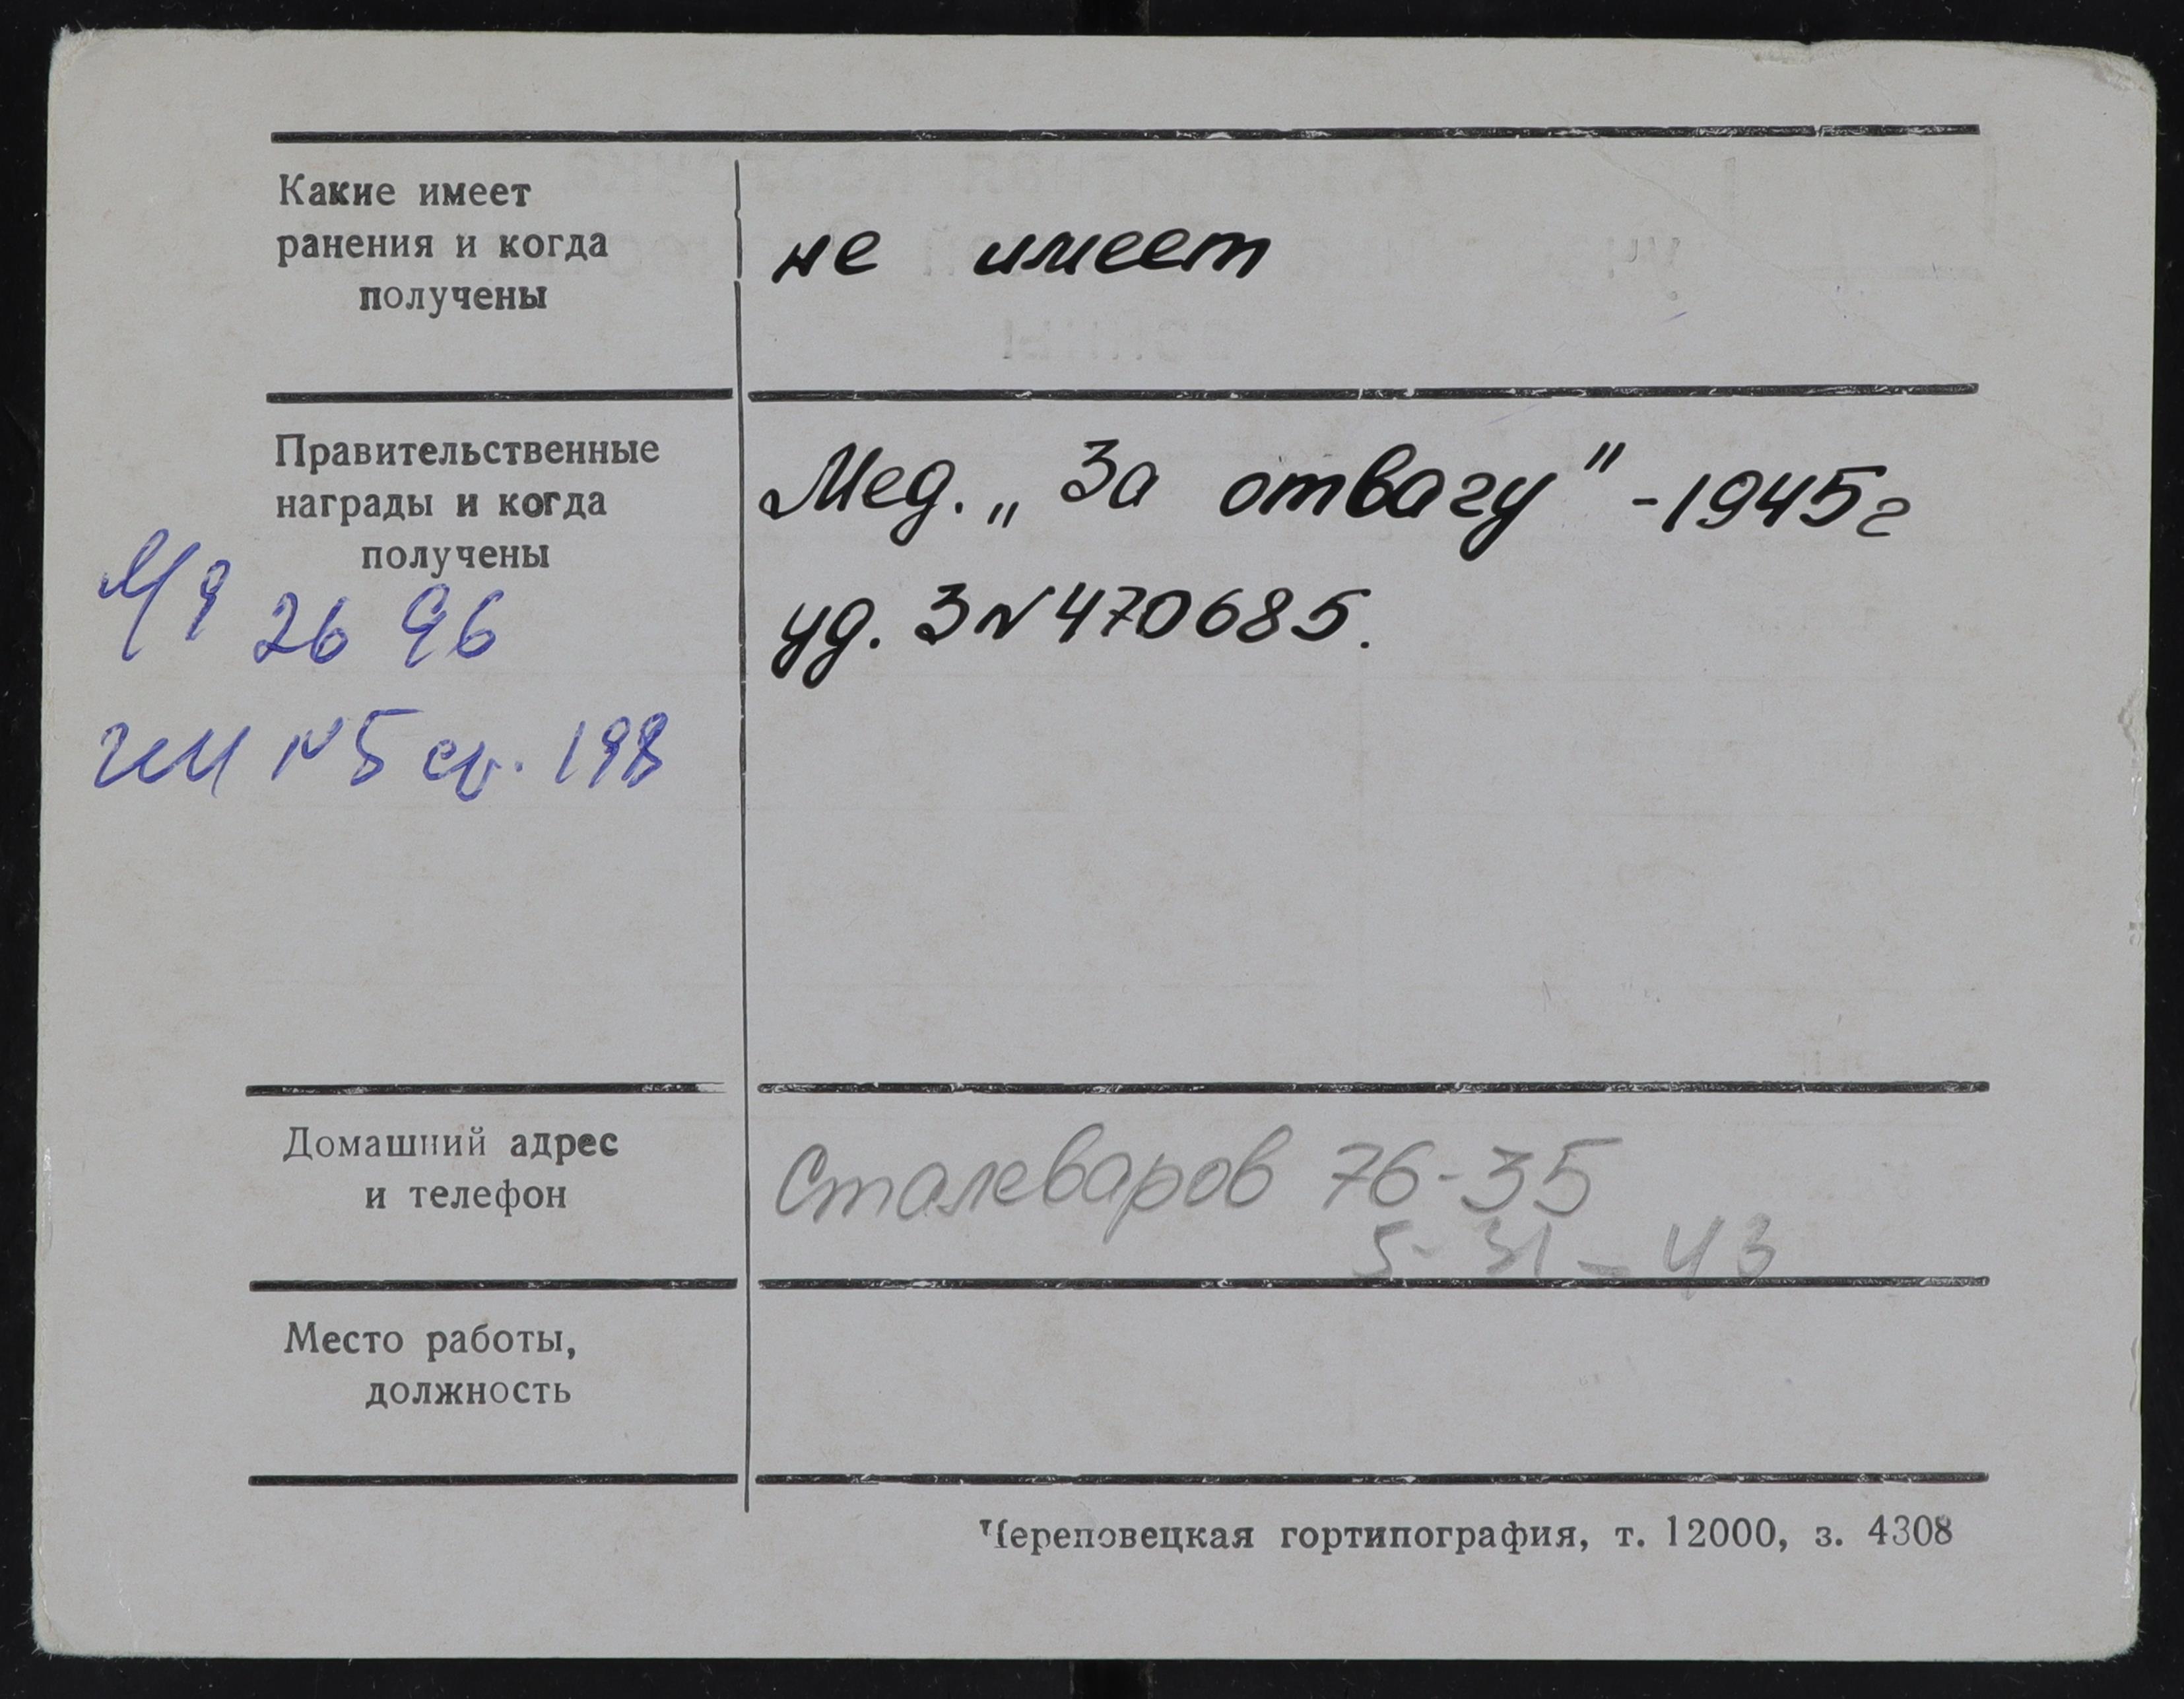 Какие имеет
ранения и когда
получены
не имеет
Правительственные
награды и когда
получены
Мед. „За отвагу" - 1945 г
уд. З № 470685.
26 96
№ 5 ст. 198
Домашний адрес
и телефон
Сталеваров 76-35
5-31-43
Место работы,
должность
Череповецкая гортипография, т. 12000, з. 4308